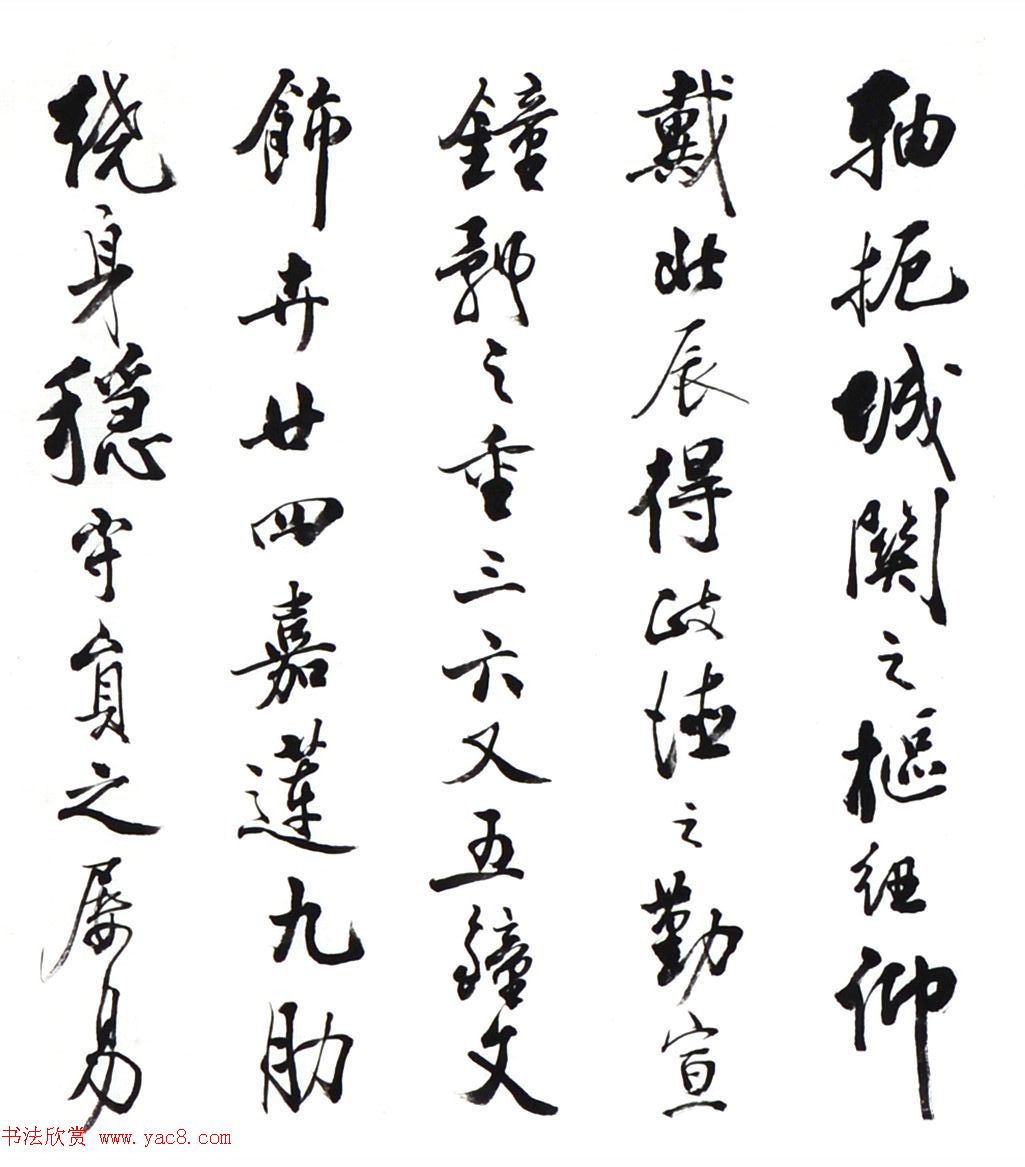 軸扼城關之樞紐仰
戴北辰得政德之勤宣
鐘之重三六又五鐘文
飾卉廿四嘉蓮九肋
绕身穏守之屬易
书法欣赏 www.yac8.com